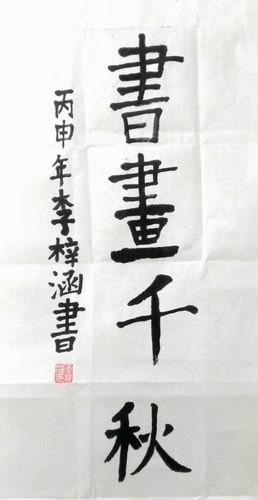 書畫千秋
丙申年李梓涵書